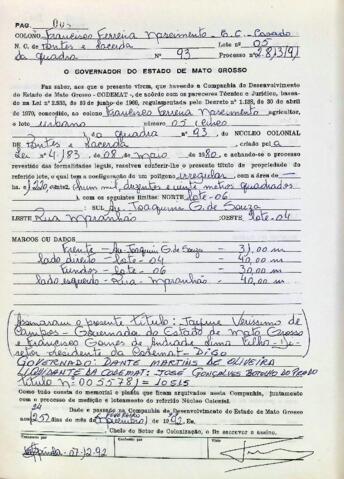 PAG.
COLONO Francisco Ferreira Nascimento - B.C. - Casado
N. C. de Pontes e Lacerda Lote nº 05
da quadra Nº 93 Processo nº 2.813/91
O GOVERNADOR DO ESTADO DE MATO GROSSO
Faz saber, aos que a presente virem, que havendo a Companhia de Desenvolvimento
do Estado de Mato Grosso - CODEMAT -, de acôrdo com os pareceres Técnico e Jurídico, basea-
do na Lei nº 2.933, de 10 de junho de 1969, regulamentada pelo Decreto nº 1.138, de 30 de abril
de 1970, concedido, ao colono Francisco Ferreira Nascimento agricultor,
o lote urbano número 05 (cinco)
da quadra nº 93, DO NÚCLEO COLONIAL
DE Pontes e Lacerda criado pela
Lei nº 4.183, de 08 de Maio de 1980, e achando-se o processo
revestido das formalidades legais, resolveu conferir-lhe o presente título de propriedade do
referido lote, o qual tem a configuração de um polígono irregular, com a área de
1.220,00mts2 (hum mil, duzentos e vinte metros quadrados
), com os seguintes limites: NORTE lote-06
SUL Av. Joaquim G. de Souza
LESTE Rua Maranhão OESTE lote-04
MARCOS OU DADOS
Frente - Av. Joaquim G. de Souza - 31,00 m
lado direito - lote-04 - 40,00 m
Fundos - lote-06 - 30,00 m
lado esquerdo - Rua - Maranhão - 40,00 m
Assinaram o presente título: Jayme Veríssimo de
Campos - Governador do Estado de Mato Grosso
e Francisco Gomes de Andrade Lima Filho - Di-
retor Presidente da Codemat - Digo
GOVERNADO: DANTE MARTINS DE OLIVEIRA
LIQUIDANTE DA CODEMAT: JOSÉ GONÇALVES BOTELHO DO PRADO
título Nº 0055781 = 10515
Como tudo consta do memorial e planta que ficam arquivados nesta Companhia, juntamente
com o processo de medição e loteamento do referido Núcleo Colonial.
Dado e passado na Companhia de Desenvolvimento do Estado de Mato Grosso
aos 25 dias do mês de FEVEREIRO de 1992. Eu,
Chefe do Setor de Colonização, o fiz escrever e assino.
Conferido Visto
07.12.92